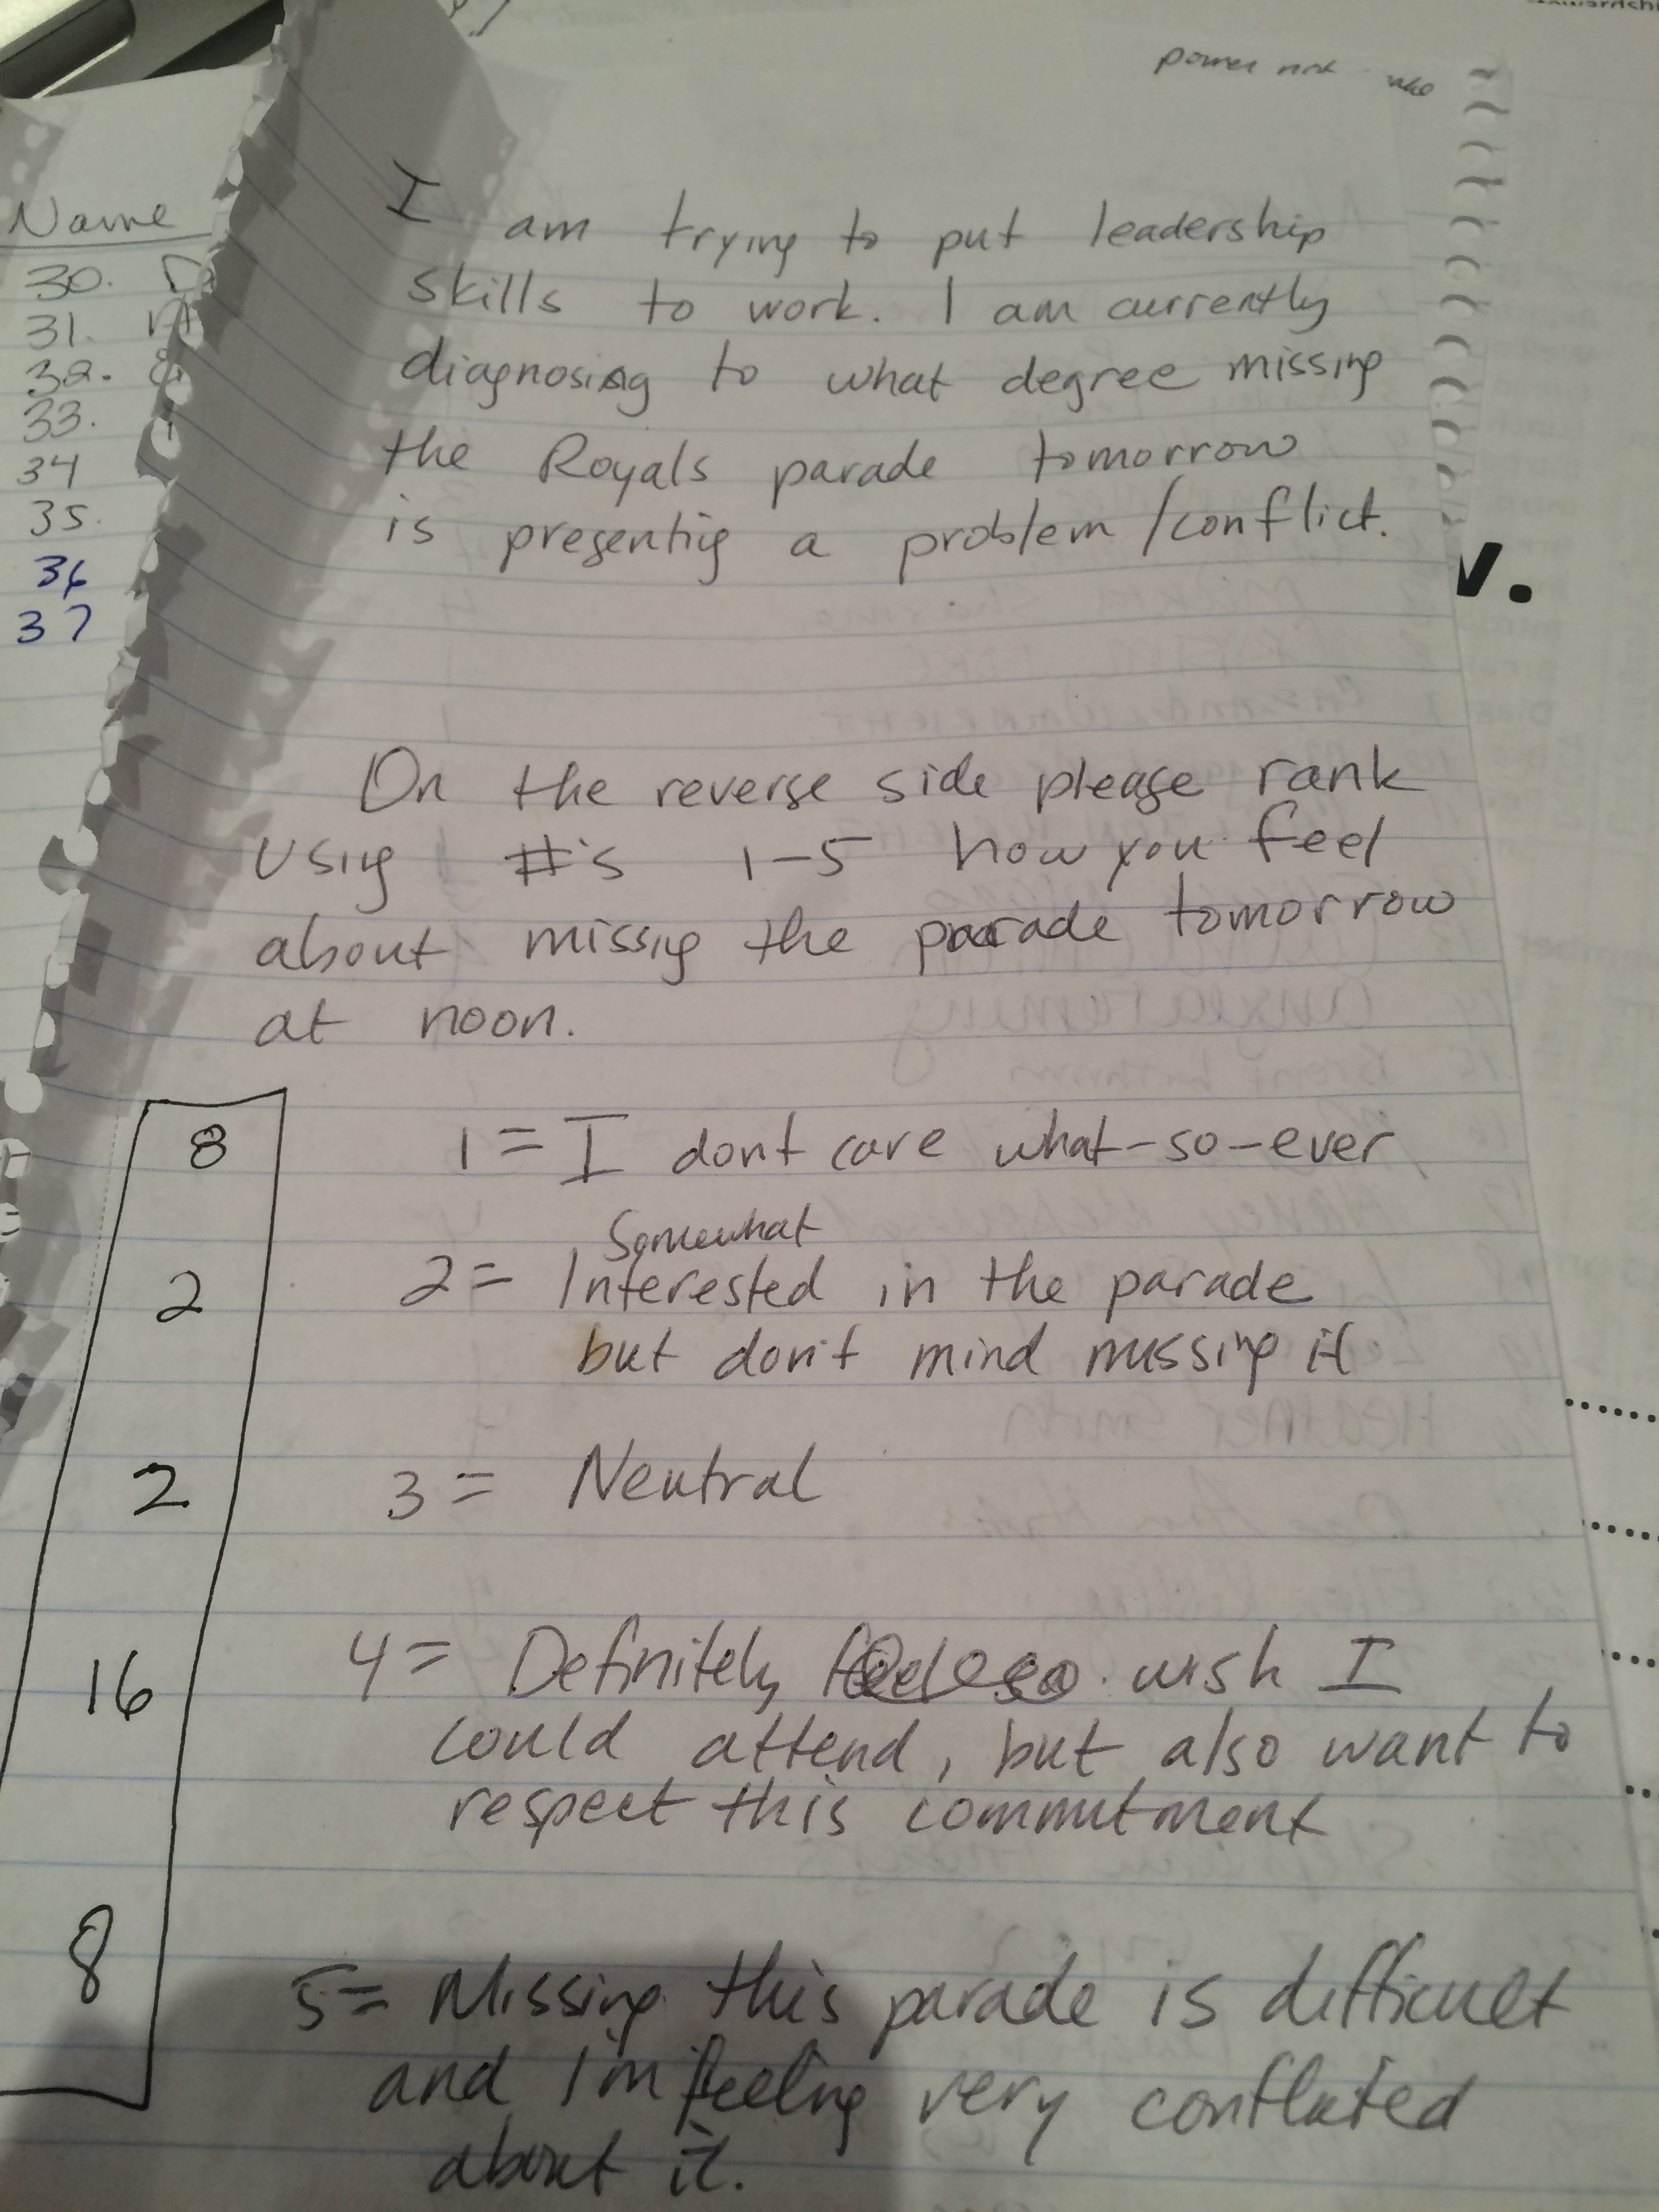 power not
Name
30. D
31. A
32.
33.
34
35.
36
37
I am trying to put leadership
skills to work. I am currently
diagnosing to what degree missing
the Royals parade tomorrow
is presenting a problem/conflict.
v.
On the reverse side please rank
Using #'s 1-5 how you feel
about missing the parade tomorrow
at noon.
8 1 = I dont care what-so-ever
Somewhat
2 2 = Interested in the parade
but don't mind missing it
2 3 = Neutral
16 4 = Definitely wish I
could attend, but also want to
respect this commitment
8 5 = Missing this parade is difficult
and I'm feeling very conflicted
about it.